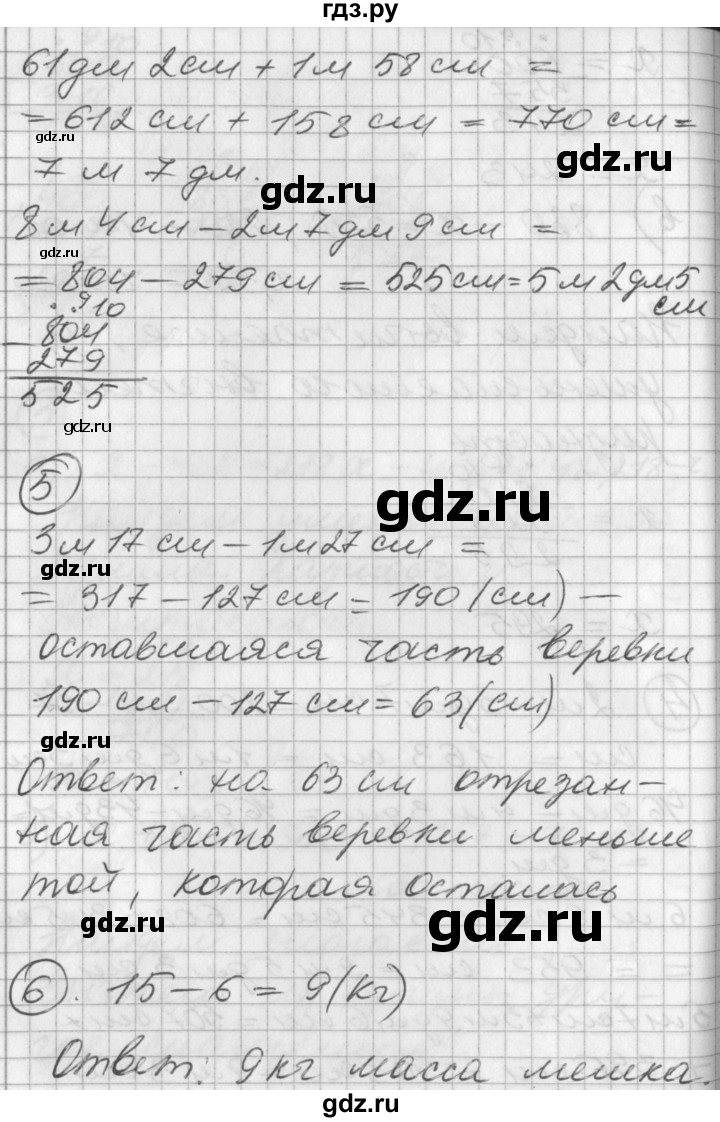 гдз.ру
61 дм 2 см + 1 м 58 см =
= 612 см + 158 см = 770 см =
gdz.ru
gdz.ru
7 м 7 дм.
gdz.ru
8 м 4 см – 2 м 7 дм 9 см =
gdz.ru
= 804 – 279 см = 525 см = 5 м 2 дм 5
см
. . 9 10
– 804
279
525
gdz.ru
5
gdz.ru
3 м 17 см – 1 м 27 см =
gdz.ru
= 317 – 127 см = 190 (см) –
оставшаяся часть веревки
190 см – 127 см = 63 (см)
gdz.ru
Ответ: на 63 см отрезан-
ная часть веревки меньше
той, которая осталась
gdz.ru
gdz.ru
6. 15 – 6 = 9 (кг)
Ответ: 9 кг масса мешка.
gdz.ru